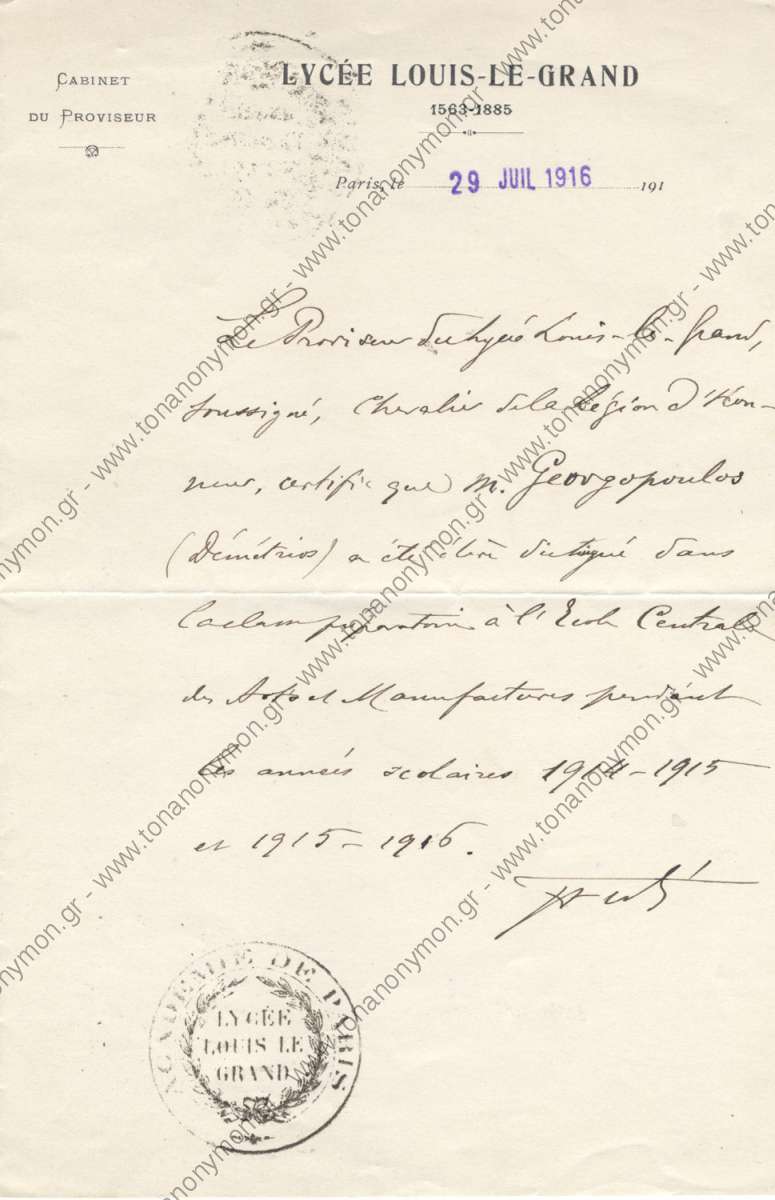 CABINET
DU PROVISEUR
LYCÉE LOUIS-LE-GRAND
1563-1885
Paris, le 29 JUIL 1916 191
Le Proviseur du Lycée Louis-le-Grand,
soussigné, Chevalier de la Légion d'Hon-
neur, certifie que M. Georgopoulos
(Démétrios) a été élève distingué dans
la classe préparatoire à l'Ecole Centrale
des Arts et Manufactures pendant
les années scolaires 1914-1915
et 1915-1916.
ACADEMIE DE PARIS
LYCÉE
LOUIS LE
GRAND
www.tonanonymon.gr - www.tonanonymon.gr - www.tonanonymon.gr